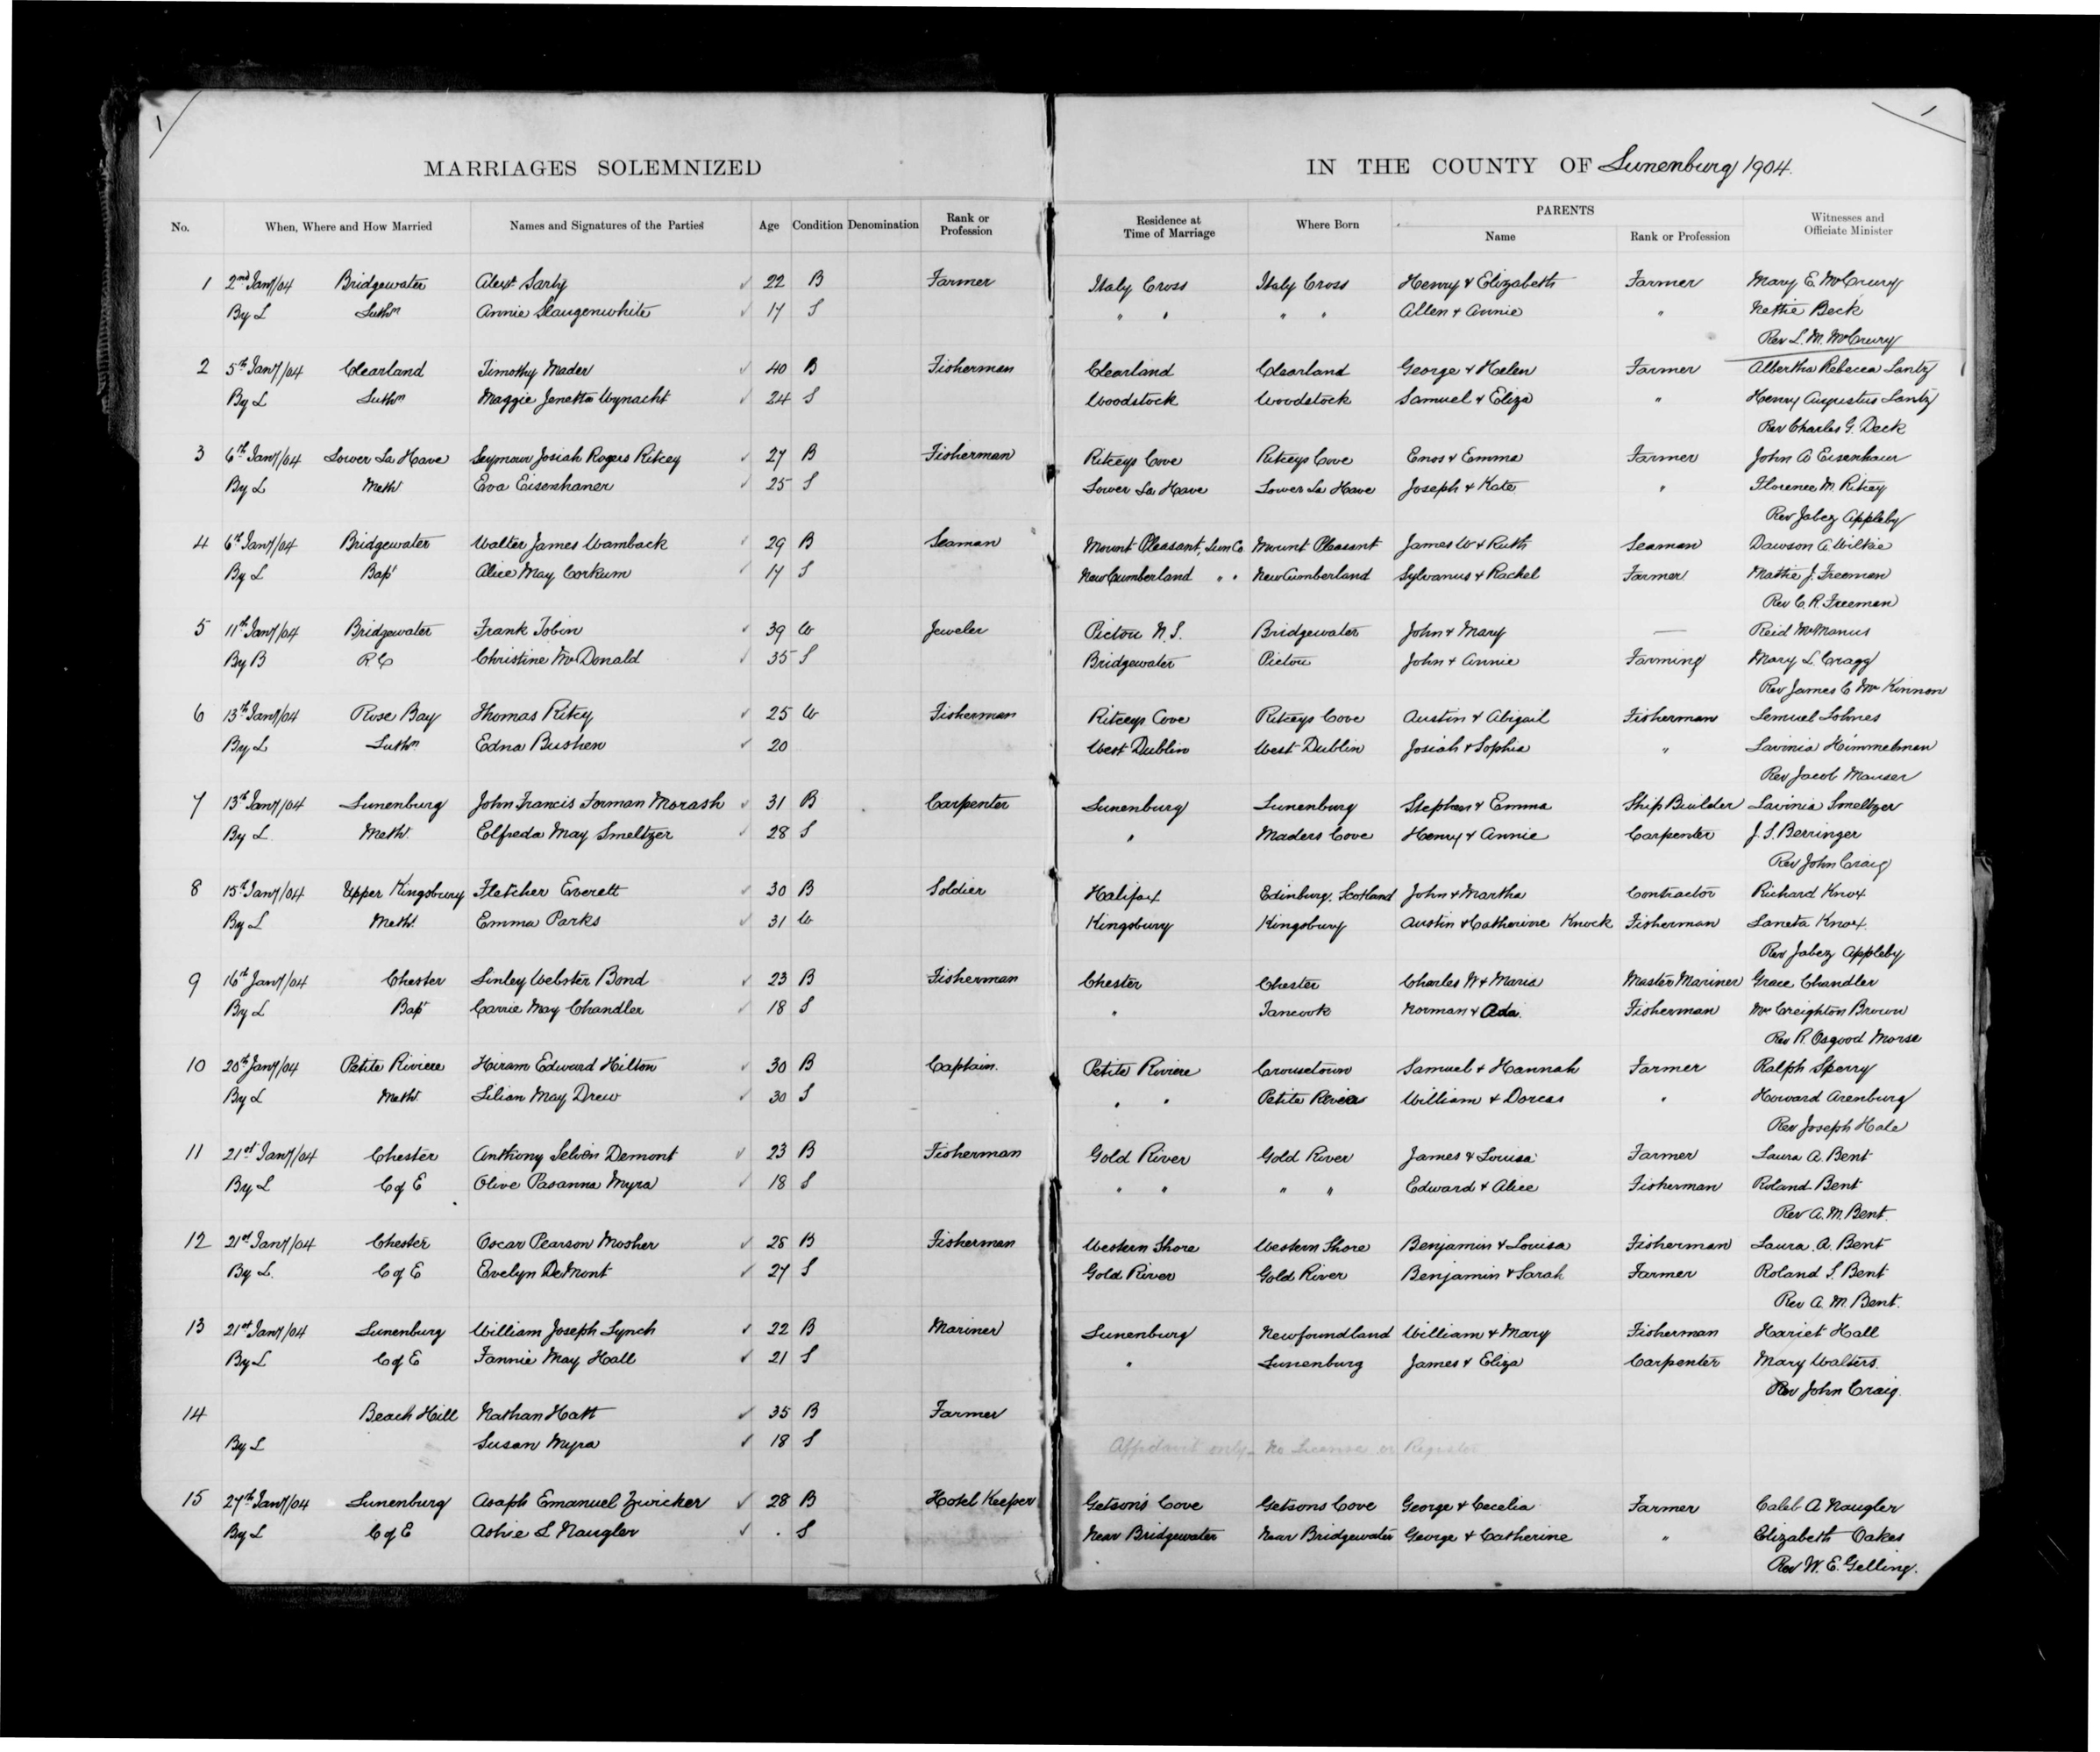 1 1
MARRIAGES SOLEMNIZED IN THE COUNTY OF Lunenburg 1904.
No. When, Where and How Married Names and Signatures of the Parties Age Condition Denomination Rank or Profession Residence at Time of Marriage Where Born PARENTS Name Rank or Profession Witnesses and Officiate Minister
1 2nd Jany/04 Bridgewater Alexr Sarty ✓ 22 B Farmer Italy Cross Italy Cross Henry & Elizabeth Farmer Mary E. McCreery
By L Luthn Annie Slaugenwhite ✓ 17 S " " " " Allen & Annie " Nettie Beck
Rev L. M. McCreery
2 5th Jany/04 Clearland Timothy Mader ✓ 40 B Fisherman Clearland Clearland George & Helen Farmer Albertha Rebecca Lantz
By L Luthn Maggie Jenetta Wynacht ✓ 24 S Woodstock Woodstock Samuel & Eliza " Henry Augustus Lantz
Rev Charles G. Deck
3 6th Jany/04 Lower La Have Seymour Josiah Rogers Ritcey ✓ 27 B Fisherman Ritceys Cove Ritceys Cove Enos & Emma Farmer John A Eisenhaur
By L Meth Eva Eisenhaner ✓ 25 S Lower La Have Lower La Have Joseph & Kate " Florence M. Ritcey
Rev Jabez Appleby
4 6th Jany/04 Bridgewater Walter James Wamback ✓ 29 B Seaman Mount Pleasant, Lun Co Mount Pleasant James W & Ruth Seaman Dawson A. Wilkie
By L Bapt Alice May Corkum ✓ 17 S New Cumberland " " New Cumberland Sylvanus & Rachel Farmer Mattie J. Freeman
Rev C. R. Freeman
5 11th Jany/04 Bridgewater Frank Tobin ✓ 39 W Jeweler Pictou N.S. Bridgewater John & Mary — Reid McManus
By B R C Christine McDonald ✓ 35 S Bridgewater Pictou John & Annie Farming Mary L. Cragg
Rev James C McKinnon
6 13th Jany/04 Rose Bay Thomas Ritcy ✓ 25 W Fisherman Ritceys Cove Ritceys Cove Austin & Abigail Fisherman Lemuel Lohnes
By L Luthn Edna Bushen ✓ 20 West Dublin West Dublin Josiah & Sophia " Lavinia Himmelman
Rev Jacob Mauser
7 13th Jany/04 Lunenburg John Francis Forman Morash ✓ 31 B Carpenter Lunenburg Lunenburg Stephen & Emma Ship Builder Lavinia Smeltzer
By L Meth Elfreda May Smeltzer ✓ 28 S " Maders Cove Henry & Annie Carpenter J. S. Berringer
Rev John Craig
8 15th Jany/04 Upper Kingsburg Fletcher Everett ✓ 30 B Soldier Halifax Edinburg, Scotland John & Martha Contractor Richard Knox
By L Meth Emma Parks ✓ 31 W Kingsburg Kingsburg Austin & Catherine Knock Fisherman Laneta Knox
Rev Jabez Appleby
9 16th Jany/04 Chester Linley Webster Bond ✓ 23 B Fisherman Chester Chester Charles W & Maria Master Mariner Grace Chandler
By L Bapt Carrie May Chandler ✓ 18 S " Tancook Norman & Ada Fisherman Mrs Creighton Brown
Rev R. Osgood Morse
10 20th Jany/04 Petite Riviere Hiram Edward Hilton ✓ 30 B Captain. Petite Riviere Crousetown Samuel & Hannah Farmer Ralph Sperry
By L Meth Lilian May Drew ✓ 30 S " " Petite Riviere William & Dorcas " Howard Arenburg
Rev Joseph Hale
11 21st Jany/04 Chester Anthony Selvin Demont ✓ 23 B Fisherman Gold River Gold River James & Louisa Farmer Laura A. Bent
By L C of E Olive Pasanna Myra ✓ 18 S " " " " Edward & Alice Fisherman Roland Bent
Rev A. M. Bent.
12 21st Jany/04 Chester Oscar Pearson Mosher ✓ 28 B Fisherman Western Shore Western Shore Benjamin & Louisa Fisherman Laura A. Bent
By L. C of E Evelyn DeMont ✓ 27 S Gold River Gold River Benjamin & Sarah Farmer Roland S. Bent
Rev A. M. Bent.
13 21st Jany/04 Lunenburg William Joseph Lynch ✓ 22 B Mariner Lunenburg Newfoundland William & Mary Fisherman Hariet Hall
By L C of E Fannie May Hall ✓ 21 S " Lunenburg James & Eliza Carpenter Mary Walters
Rev John Craig.
14 Beach Hill Nathan Hatt ✓ 35 B Farmer
By L Susan Myra ✓ 18 S Affidavit only – No License or Register
15 27th Jany/04 Lunenburg Asaph Emanuel Zwicker ✓ 28 B Hotel Keeper Getson's Cove Getsons Cove George & Cecelia Farmer Caleb A Naugler
By L C of E Ashie L Naugler ✓ . S Near Bridgewater Near Bridgewater George & Catherine " Elizabeth Oakes
Rev W. E. Gelling.